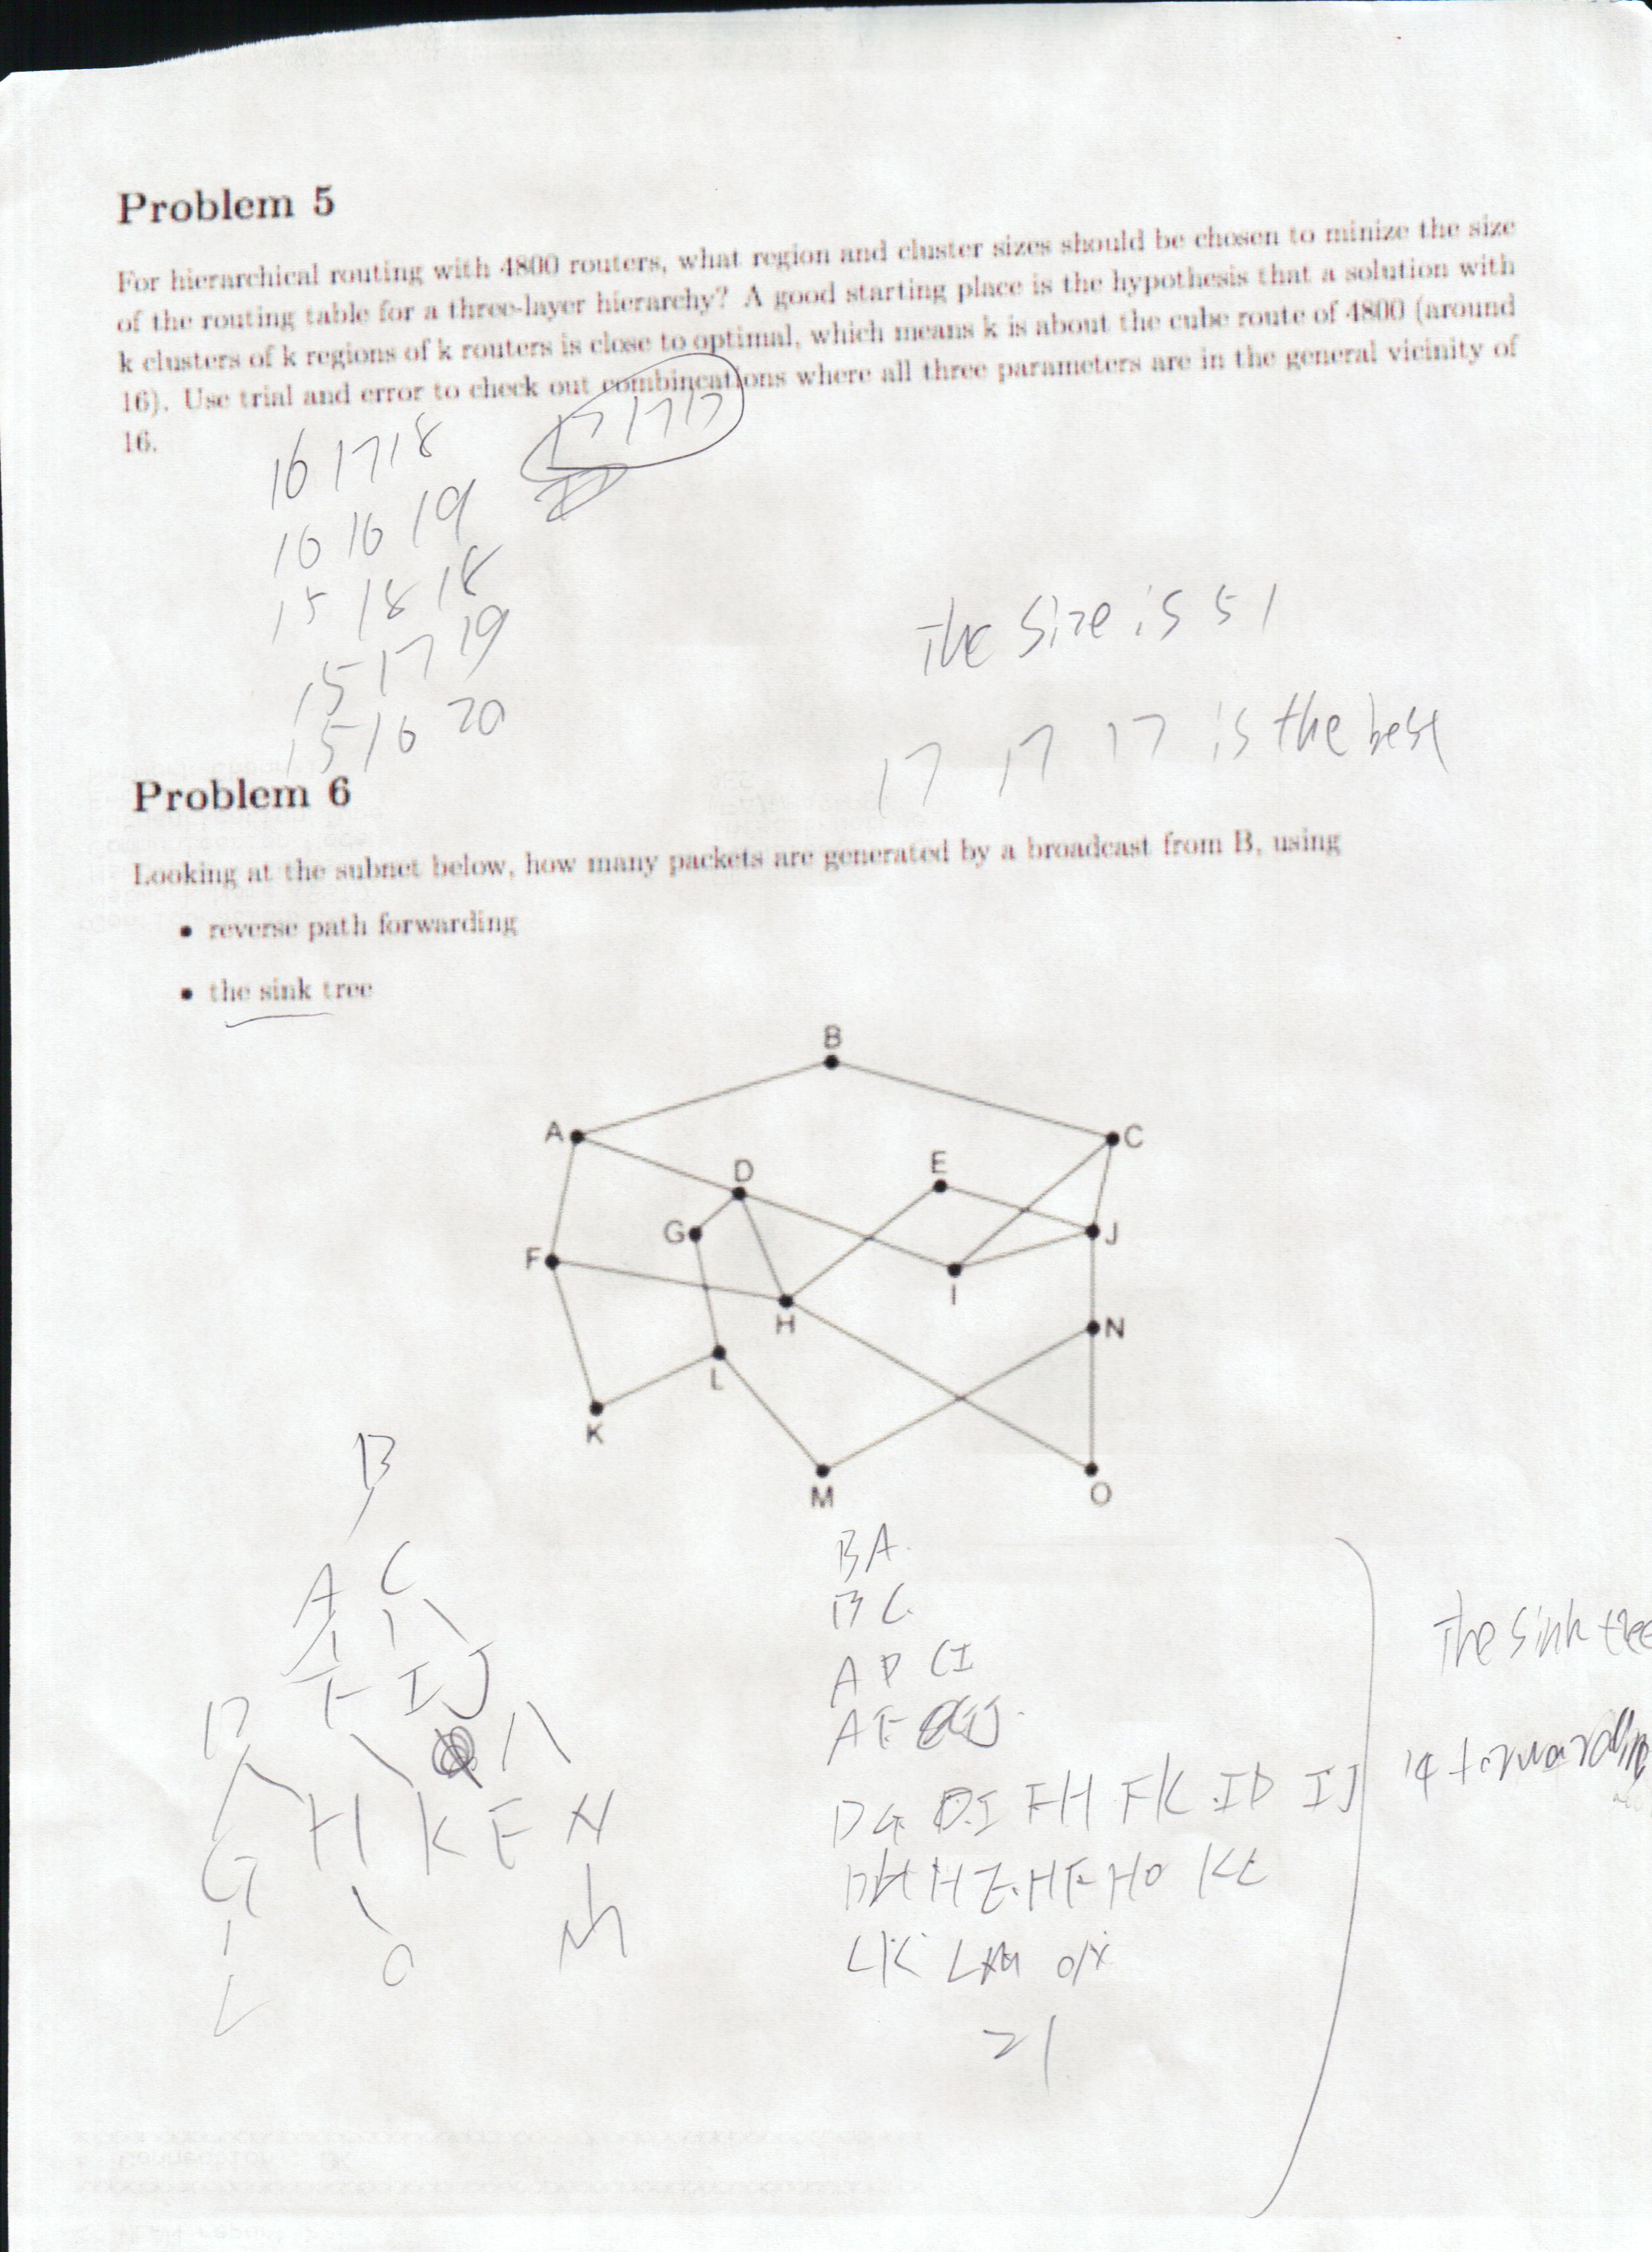 Problem 5
For hierarchical routing with 4800 routers, what region and cluster sizes should be chosen to minize the size
of the routing table for a three-layer hierarchy? A good starting place is the hypothesis that a solution with
k clusters of k regions of k routers is close to optimal, which means k is about the cube route of 4800 (around
16). Use trial and error to check out combincations where all three parameters are in the general vicinity of
16.
17 17 17
16 17 18
16 16 19
15 18 18
15 17 19
15 16 20
The size is 51
17 17 17 is the best
Problem 6
Looking at the subnet below, how many packets are generated by a broadcast from B, using
• reverse path forwarding
• the sink tree
B
A
C
D
E
G
J
F
I
H
N
L
K
M
O
B
A C
D F I J
G H K E N
L O M
BA
BC
AD CI
AF CJ
DG DI FH FK ID IJ
DH HE HF HO KL
LK LM
21
The sink tree
14 forwarding